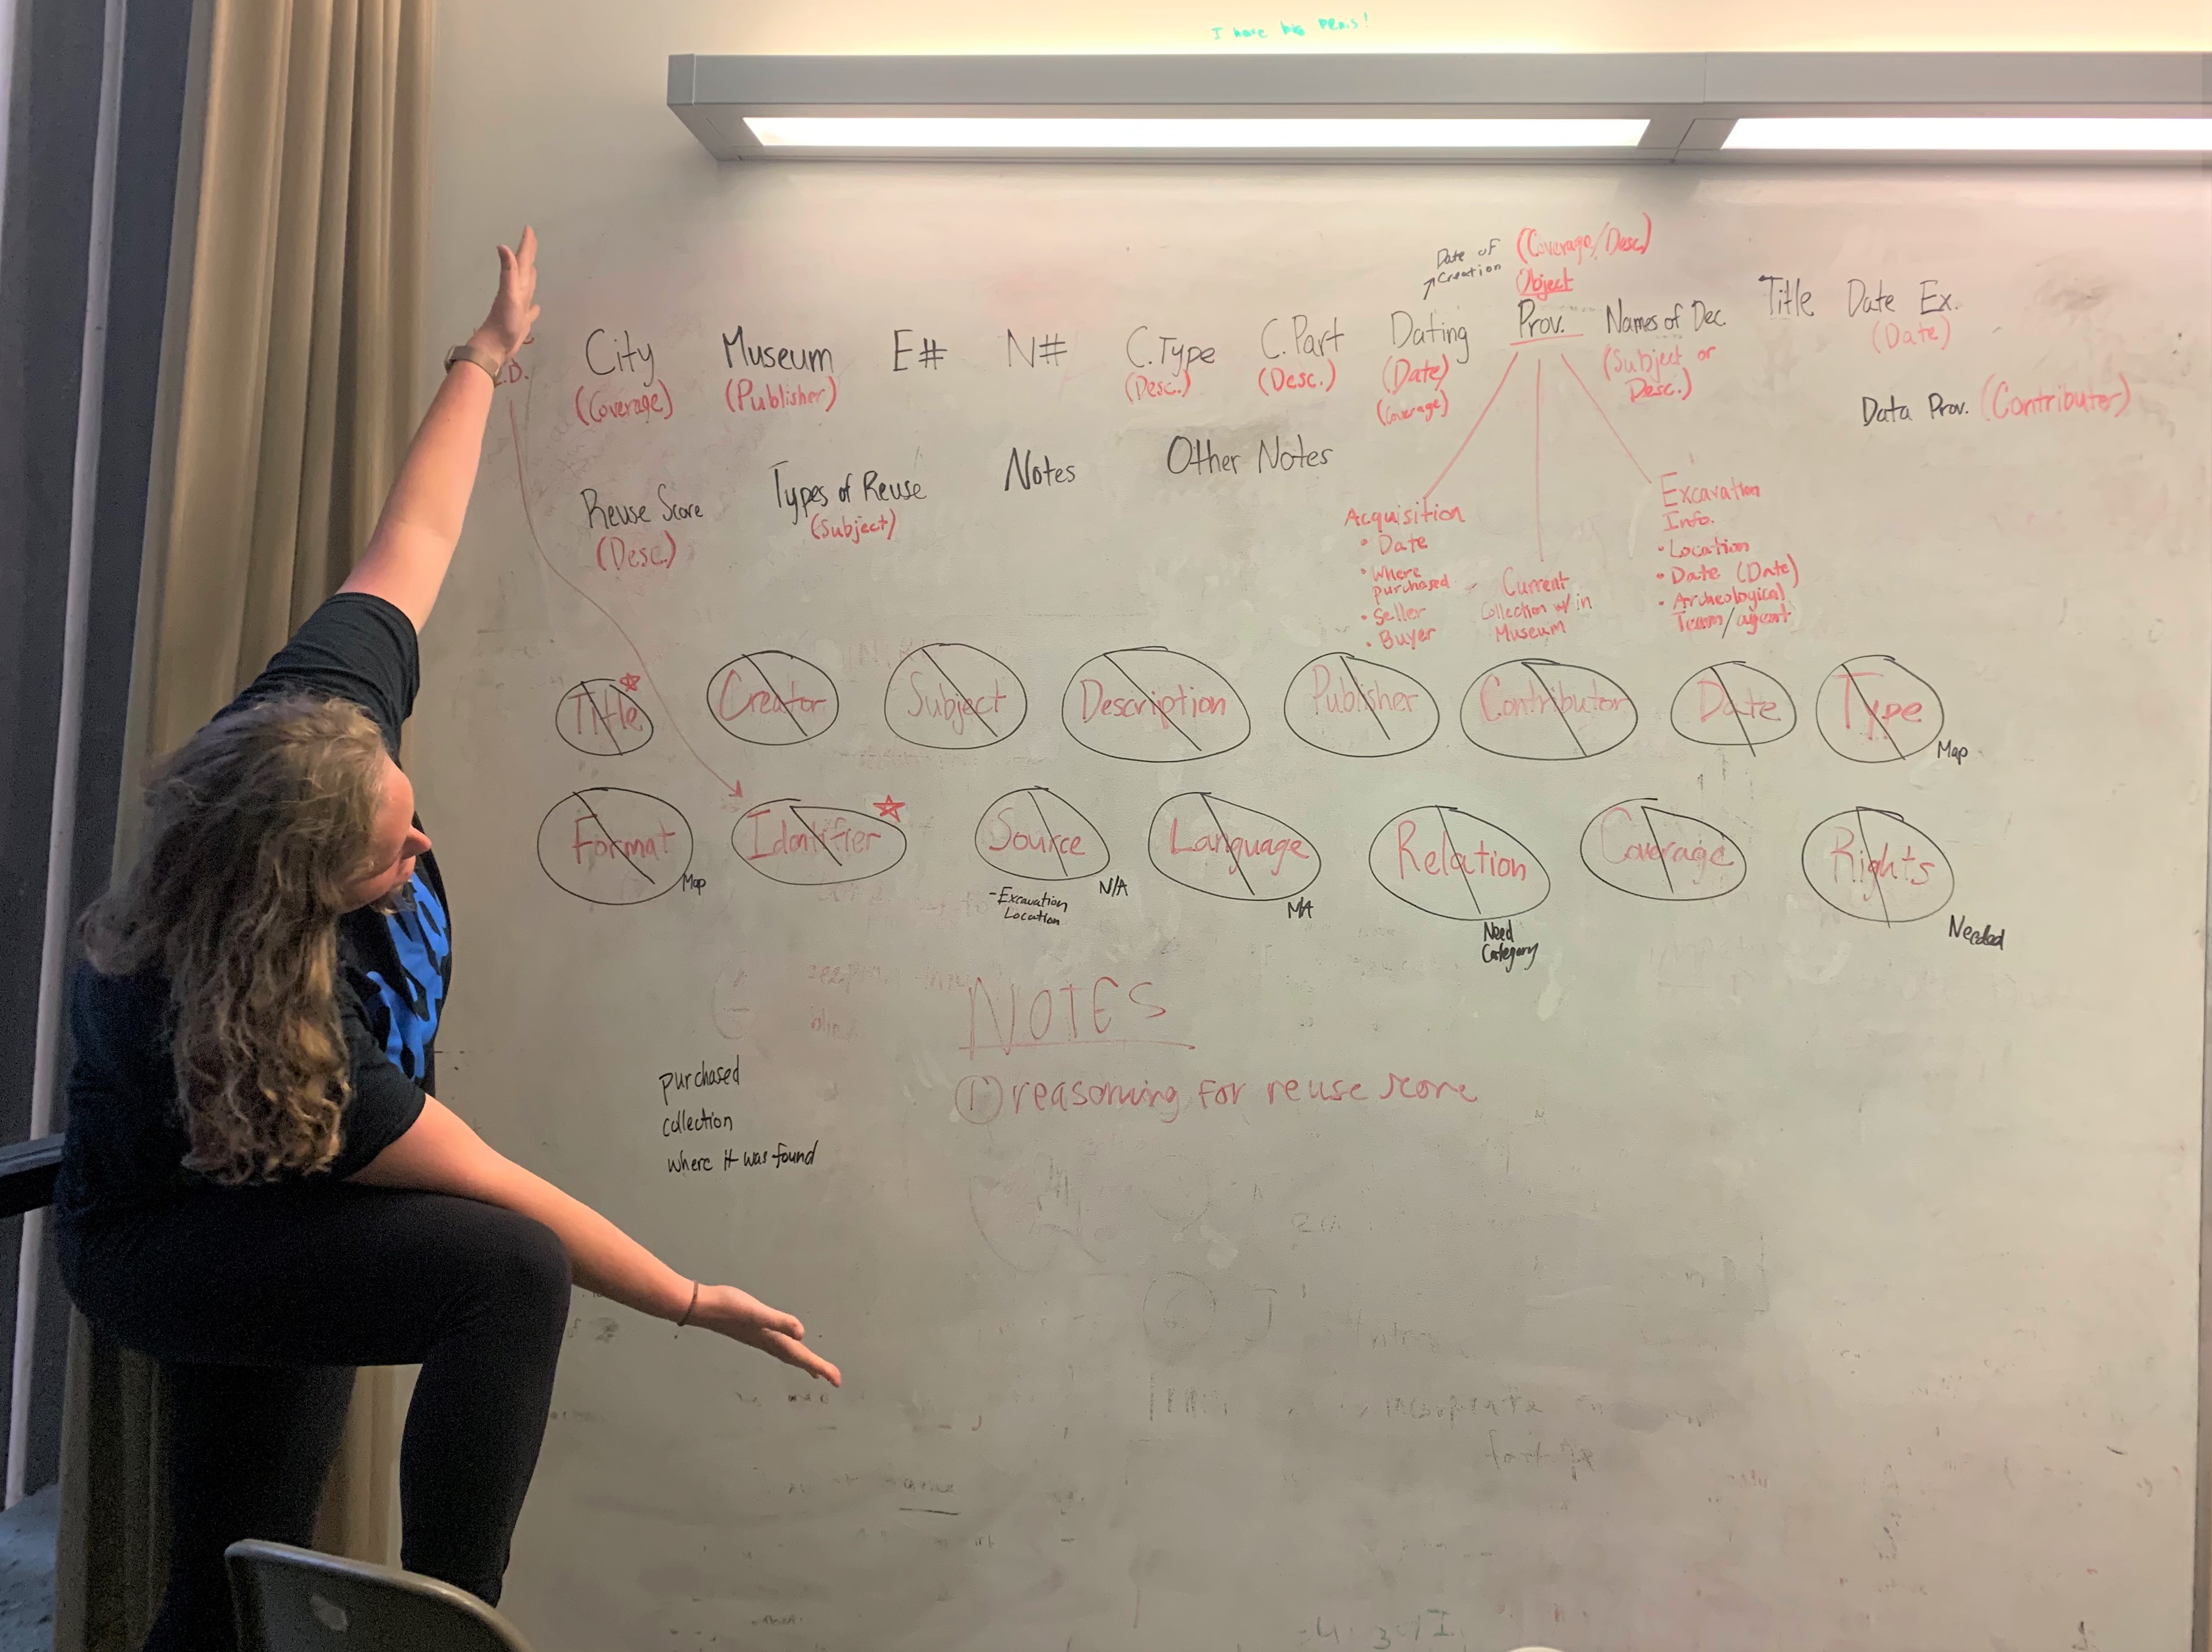 I have big penis!
Date of
Creation
(Coverage/Desc.)
Object
City
Museum
E#
N#
C.Type
C.Part
Dating
Prov.
Names of Dec.
Title
Date Ex.
I.D.
(Coverage)
(Publisher)
(Desc.)
(Desc.)
(Date)
(Coverage)
(Subject or
Desc.)
(Date)
Data Prov. (Contributor)
Reuse Score
(Desc.)
Types of Reuse
(Subject)
Notes
Other Notes
Acquisition
• Date
• Where
purchased
• Seller
• Buyer
Current
Collection w/in
Museum
Excavation
Info.
• Location
• Date (Date)
• Archeological
Team/agent
Title
Creator
Subject
Description
Publisher
Contributor
Date
Type
Map
Format
Map
Identifier
Source
-Excavation
Location
N/A
Language
N/A
Relation
Need
Category
Coverage
Rights
Needed
NOTES
① reasoning for reuse score
purchased
collection
where it was found